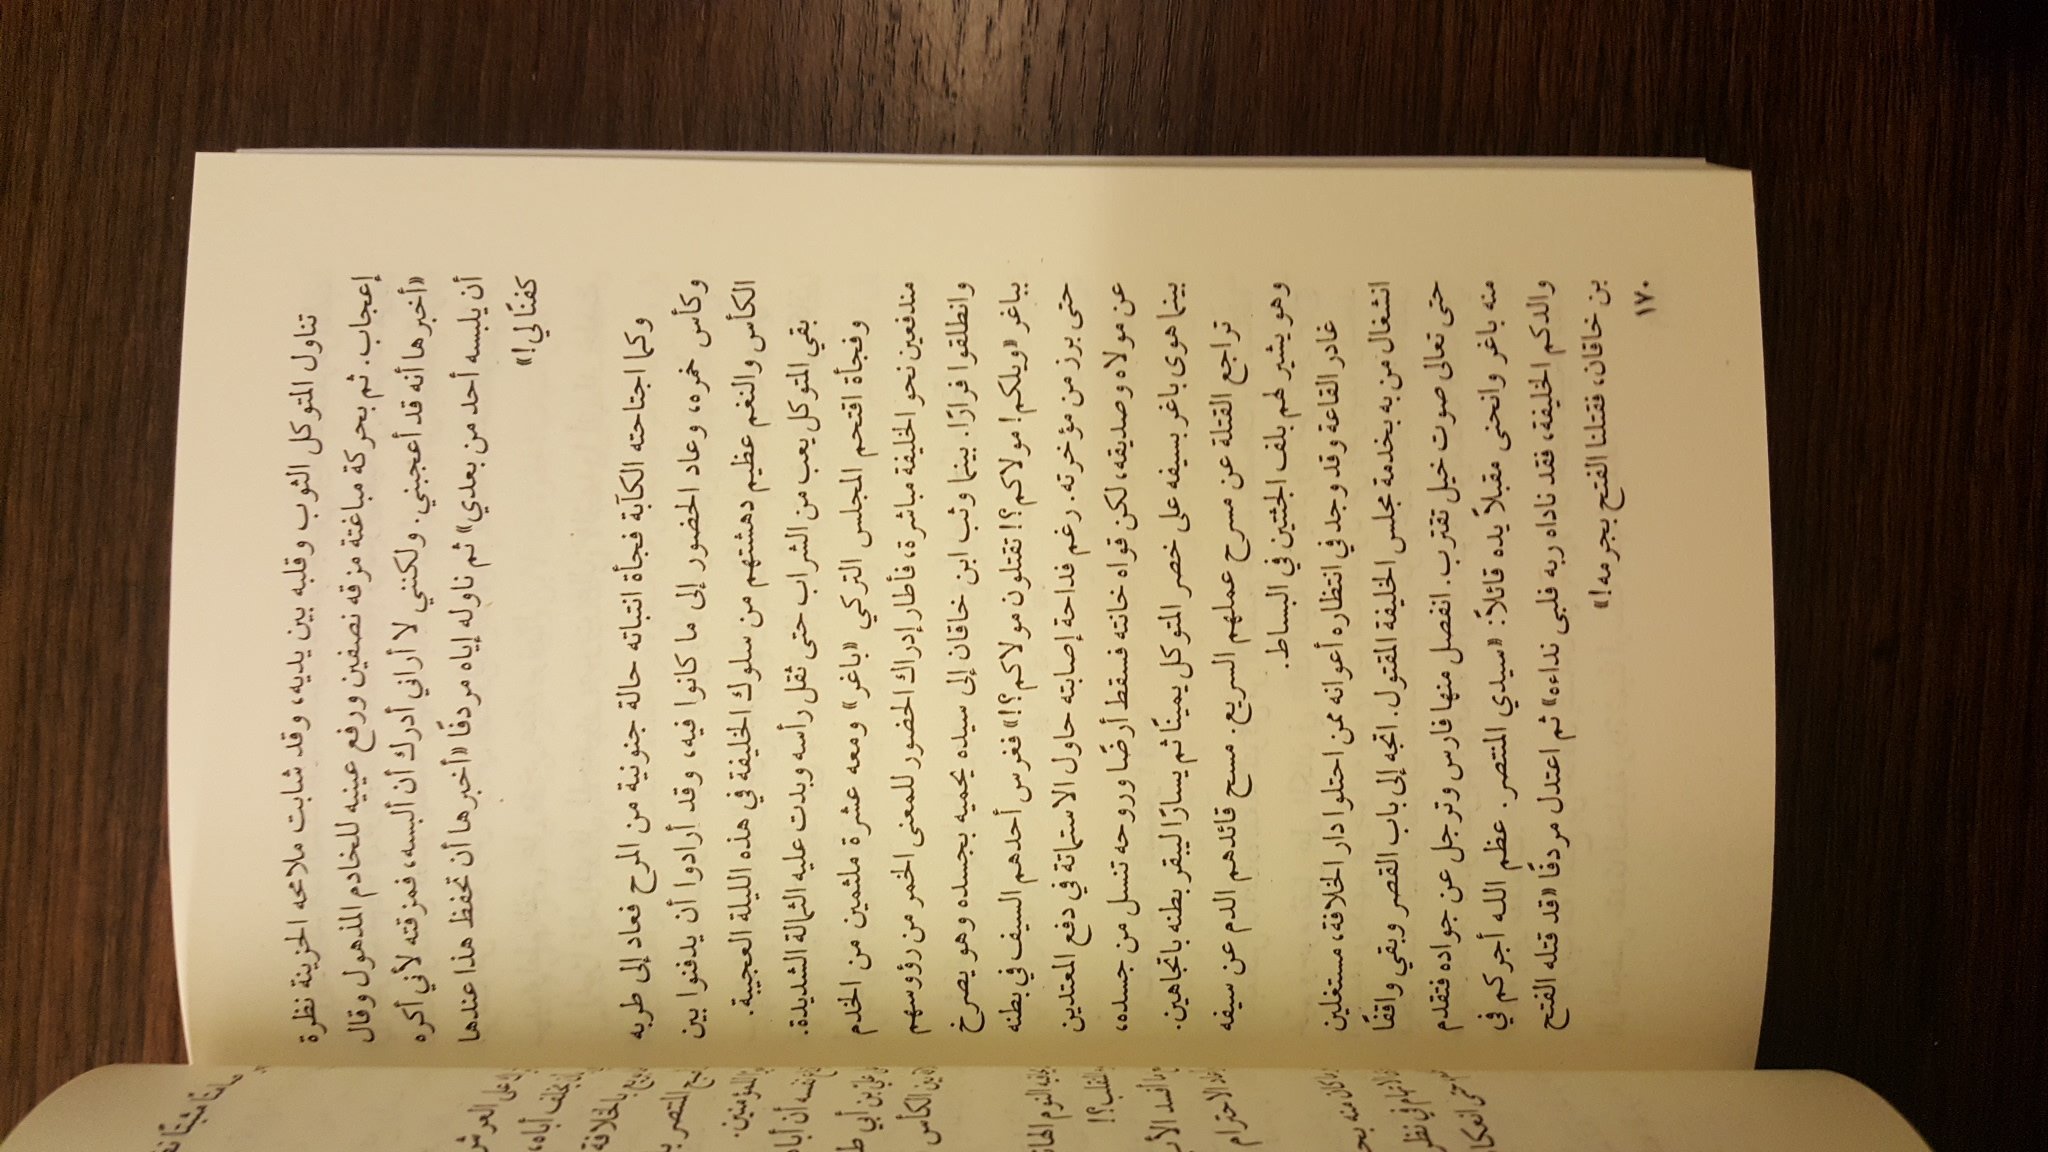 تناول المتوكل الثوب وقلبه بين يديه، وقد شابت ملامحه الحزينة نظرة
إعجاب. ثم بحركة مباغتة مزقه نصفين ورفع عينيه للخادم المذهول وقال
«أخبرها أنه قد أعجبني. ولكنني لا أراني أدرك أن ألبسه، فمزقته لأني أكره
أن يلبسه أحد من بعدي» ثم ناوله إياه مردفًا «أخبرها أن تحفظ هذا عندها
كفنًا لي!»
وكما اجتاحته الكآبة فجأة انتباته حالة جنونية من المرح فعاد إلى طربه
وكأس خمره، وعاد الحضور إلى ما كانوا فيه، وقد أرادوا أن يدفنوا بين
الكأس والنغم عظيم دهشتهم من سلوك الخليفة في هذه الليلة العجيبة.
بقي المتوكل يعب من الشراب حتى ثقل رأسه وبدت عليه الثمالة الشديدة.
وفجأة اقتحم المجلس التركي «باغر» ومعه عشرة ملثمين من الخدم
مندفعين نحو الخليفة مباشرة، فأطار إدراك الحضور للمعنى الخمر من رؤوسهم
وانطلقوا فرارًا. بينما وثب ابن خاقان إلى سيده يحميه بجسده وهو يصرخ
بباغر «ويلكم! مولاكم؟! تقتلون مولاكم؟!» فغرس أحدهم السيف في بطنه
حتى برز من مؤخرته. رغم فداحة إصابته حاول الاستماتة في دفع المعتدين
عن مولاه وصديقه، لكن قواه خانته فسقط أرضًا وروحه تنسل من جسده،
بينما هوى باغر بسيفه على خصر المتوكل يمينًا ثم يسارًا ليبقر بطنه باتجاهين.
تراجع القتلة عن مسرح عملهم السريع. مسح قائدهم الدم عن سيفه
وهو يشير لهم بلف الجثتين في البساط.
غادر القاعة وقد وجد في انتظاره أعوانه ممن احتلوا دار الخلافة، مستغلين
انشغال من به بخدمة مجلس الخليفة المقتول. اتجه إلى باب القصر وبقي واقفًا
حتى تعالى صوت خيل تقترب. انفصل منها فارس وترجل عن جواده فتقدم
منه باغر وانحنى مقبلاً يده قائلاً: «سيدي المنتصر. عظم الله أجركم في
والدكم الخليفة، فقد ناداه ربه فلبى نداءه» ثم اعتدل مردفًا «قد قتله الفتح
بن خاقان، فقتلنا الفتح بجرمه!»
١٧٠